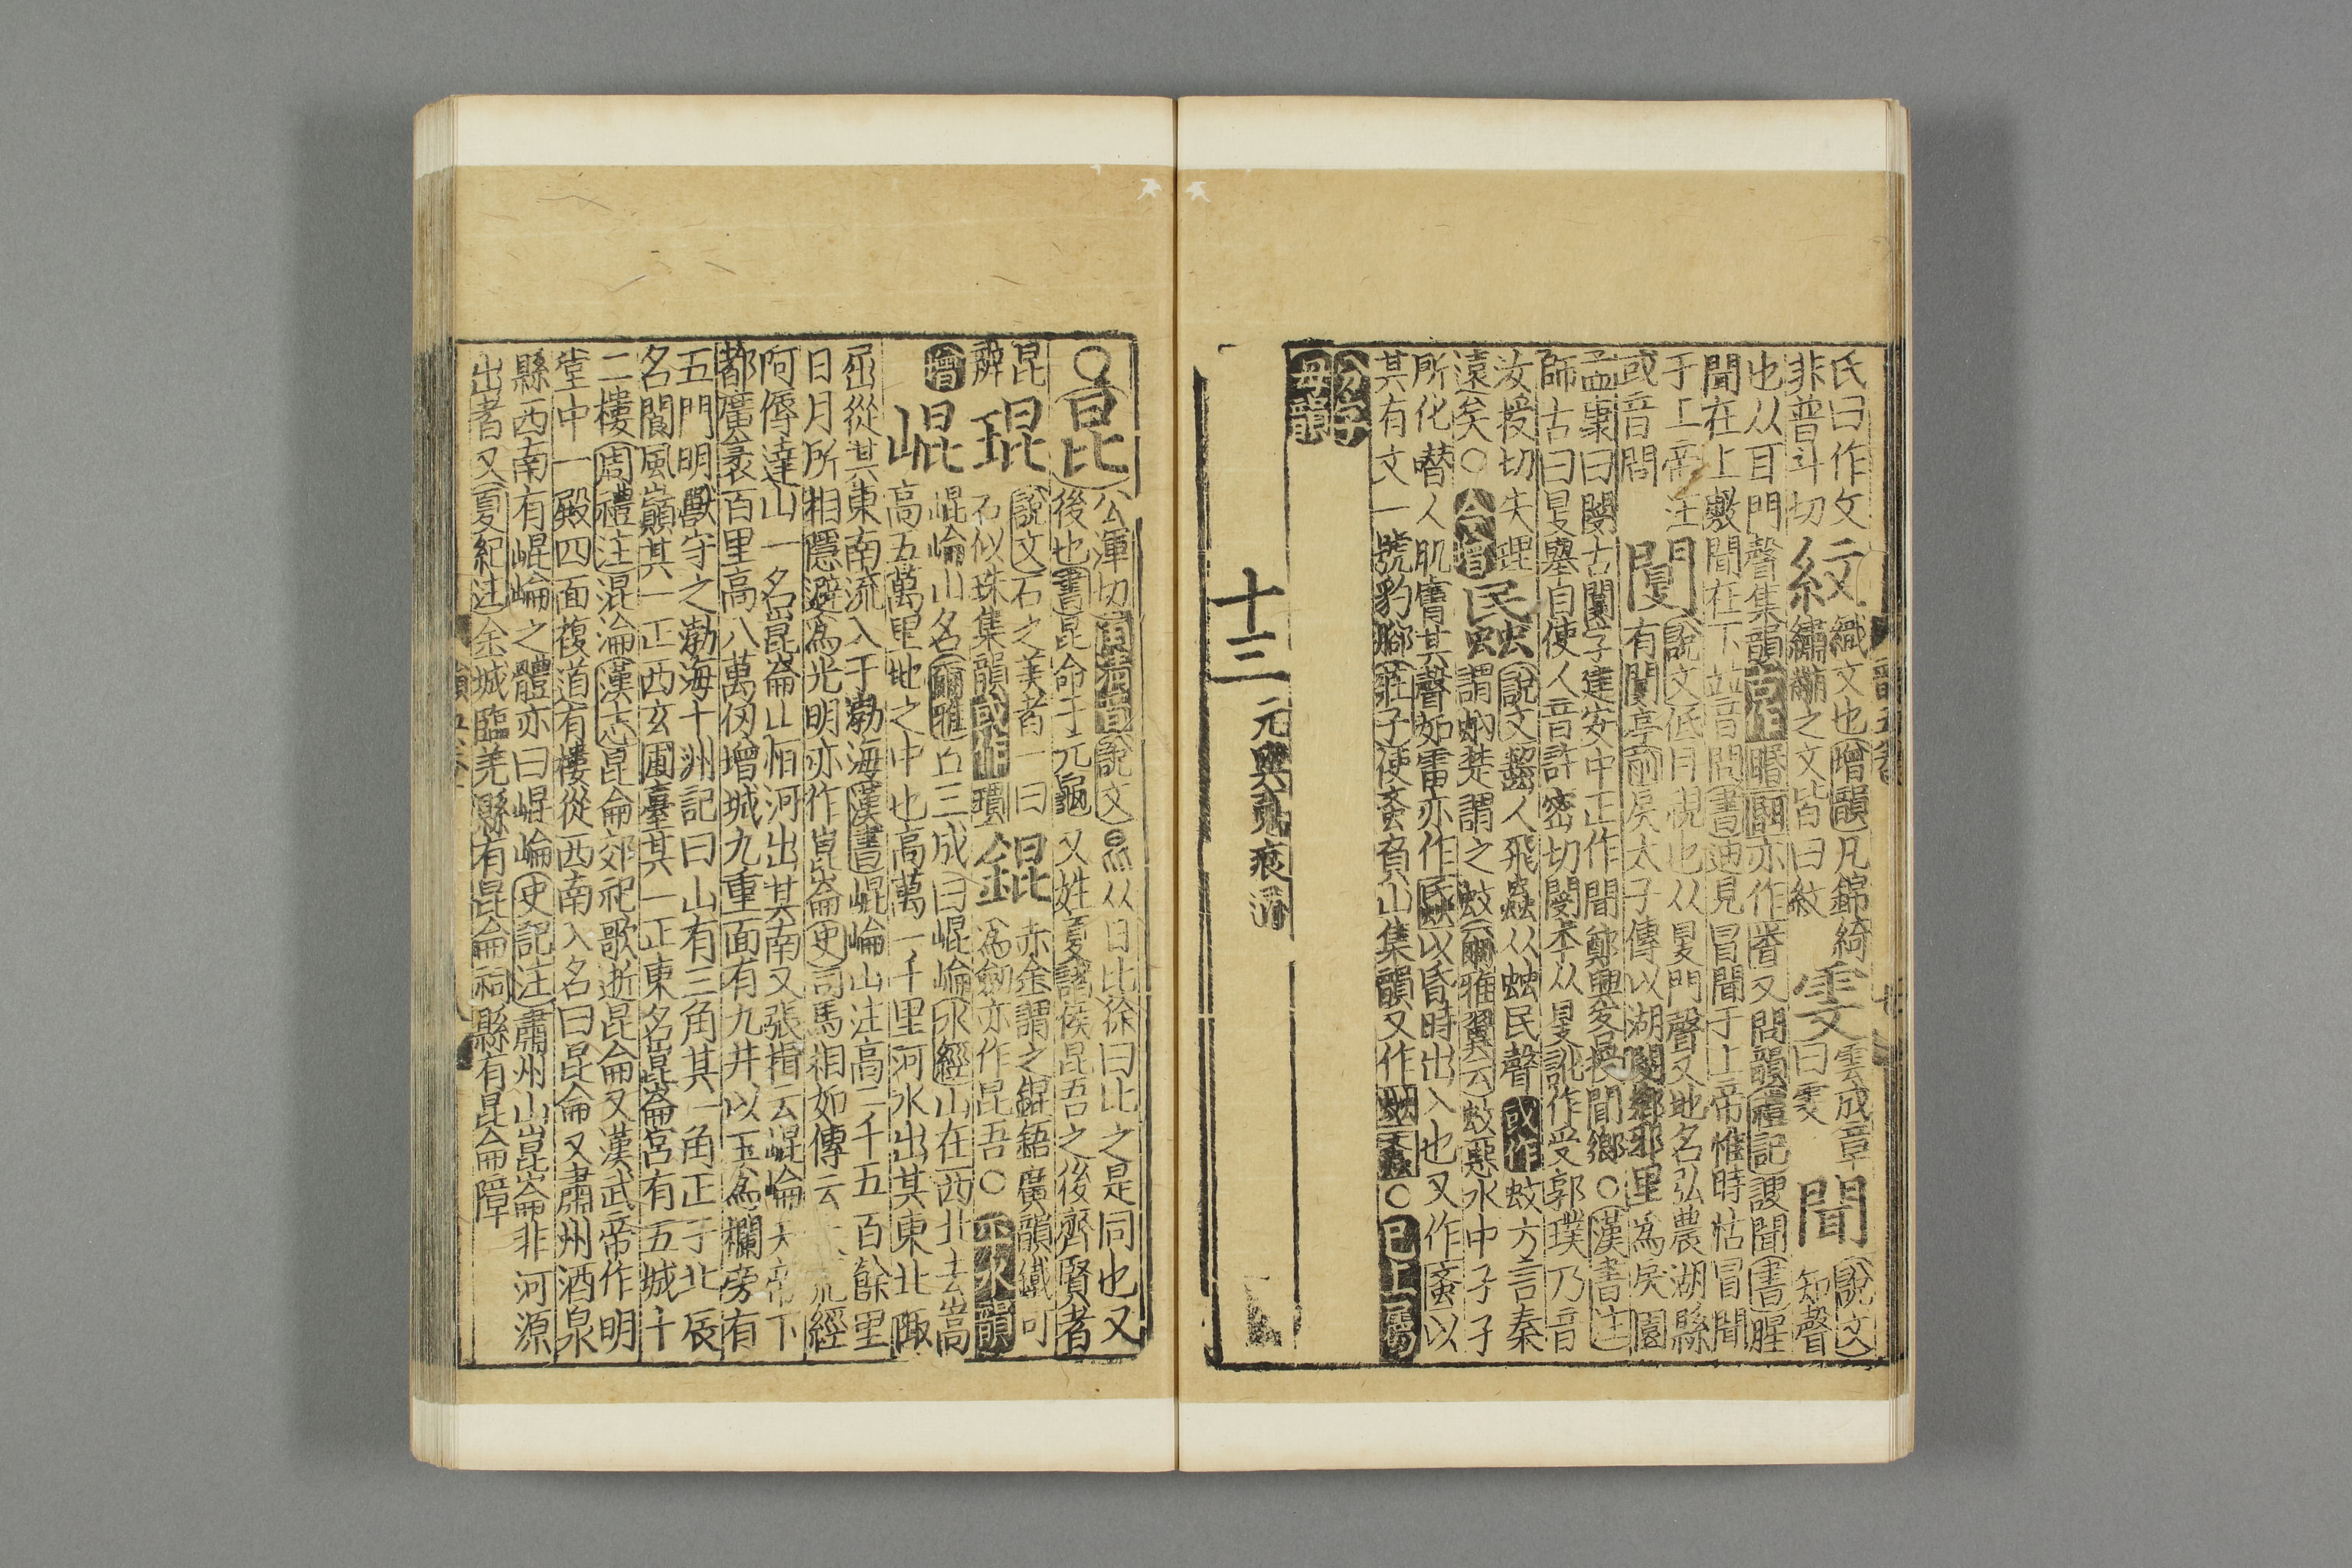 氏曰作文
非普斗切
紋
織文也增韻凡錦綺
繡黼之文皆曰紋
雯
雲成章
曰雯
聞
說文
知聲
也从耳門聲集韻古作䎽䎹亦作㖧又問韻禮記謏聞書腥
聞在上敷聞在下並音問書迪見冒聞于上帝惟時怙冒聞
于上帝注
或音問
閿
說文低目視也从㫗門聲又地名弘農湖縣
有閿亭前戾太子傳以湖閿鄉邪里爲戾園
孟康曰閿古閿字建安中正作聞鄭興爰授聞鄉○漢書注
師古曰㫗舉目使人音許密切閿本从㫗訛作受郭璞乃音
汝授切失理
遠矣○
公增
䘇
說文齧人飛蟲从䖵民聲或作蚊方言秦
謂蚋楚謂之蚊爾雅翼云蚊惡水中孑孓
所化噆人肌膚其聲如雷亦作䘇以昏時出入也又作蚉以
其有文一號豹腳莊子使蚊負山集韻又作䖟蚉○已上屬
分字
母韻
十三
元與䰟痕通
○昆
公渾切
說文
从日比徐曰比之是同也又
後也書昆命于元龜又姓夏諸侯昆吾之後齊賢者
昆
辨
琨
說文石之美者一曰
石似珠集韻或作瑻
錕
赤金謂之錕鋙廣韻鐵可
爲劒亦作昆吾○平水韻
增
崐
崐崘山名爾雅丘三成曰崐崘水經山在西北去嵩
高五萬里地之中也高萬一千里河水出其東北陬
屈從其東南流入于勃海漢書崐崘山注高二千五百餘里
日月所相隱避爲光明亦作崑崙史司馬相如傳云
經
阿傉達山一名崑崙山
河出其南又張揖云崐崘
下
都廣袤百里高八萬仞增城九重面有九井以玉爲欄旁有
五門明獸守之勃海十洲記曰山有三角其一角正于北辰
名閬風巔其一正西玄圃臺其一正東名崑崙宮有五城十
二樓周禮注混淪漢志昆侖郊祀歌逝昆侖又漢武帝作明
堂中一殿四面複道有樓從西南入名曰昆侖又肅州酒泉
縣西南有崐崘之體亦曰崐崘史記注肅州山崑崙非河源
出者又夏紀注金城臨羌縣有昆侖祠縣有昆侖障